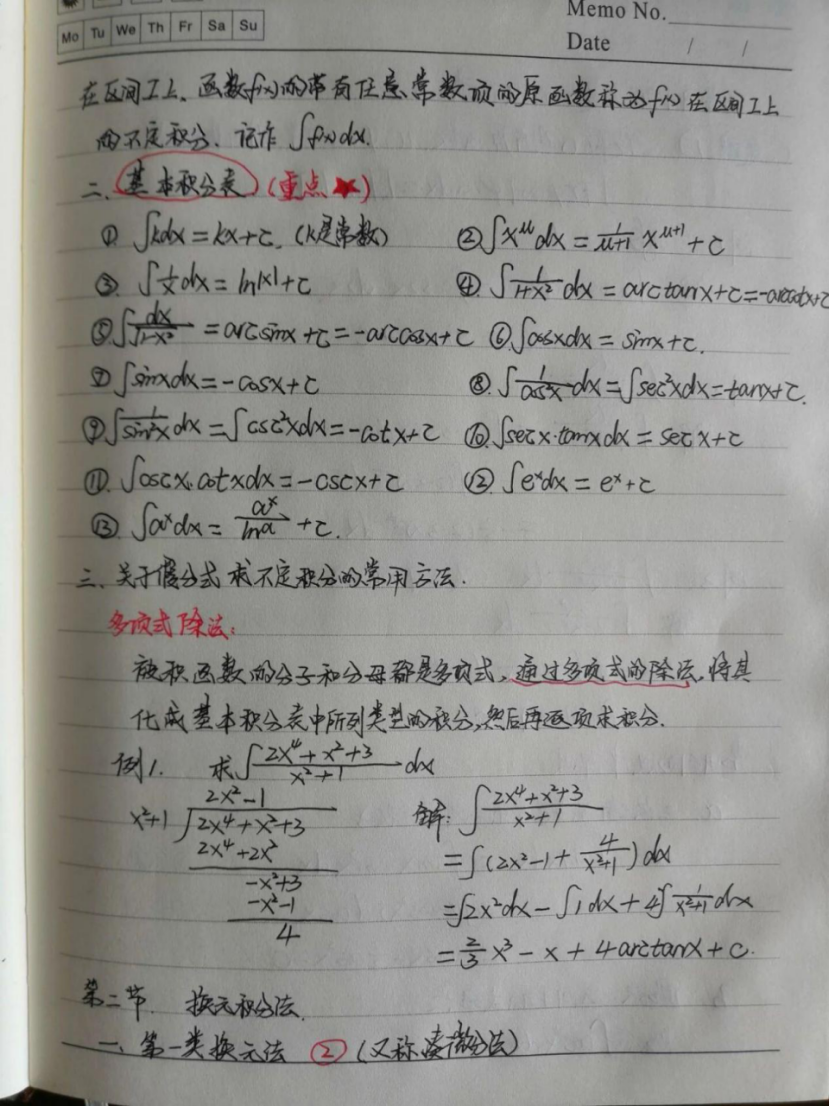 Memo No.
Mo Tu We Th Fr Sa Su
Date / /
在区间I上,函数f(x)的带有任意常数项的原函数称为f(x)在区间I上
的不定积分.记作 ∫f(x)dx.
二、基本积分表(重点★)
① ∫kdx=kx+c.(k是常数) ②∫x^μ dx = 1/(μ+1) x^(μ+1) + c
③ ∫1/x dx = ln|x|+c ④ ∫1/(1+x²) dx = arctanx+c=-arccotx+c
⑤∫dx/√(1-x²) = arcsinx+c=-arccosx+c ⑥∫cosxdx = sinx+c.
⑦∫sinxdx=-cosx+c ⑧.∫1/cos²x dx=∫sec²xdx=tanx+c.
⑨∫1/sin²x dx=∫csc²xdx=-cotx+c ⑩∫secx·tanxdx = secx+c
⑪.∫cscx.cotxdx=-cscx+c ⑫∫e^x dx = e^x+c
⑬ ∫a^x dx = a^x/lna +c.
三、关于假分式求不定积分的常用方法.
多项式除法:
被积函数的分子和分母都是多项式,通过多项式的除法,将其
化成基本积分表中所列类型的积分,然后再逐项求积分.
例1. 求∫(2x⁴+x²+3)/(x²+1) dx
2x²-1
x²+1 √2x⁴+x²+3
2x⁴+2x²
-x²+3
-x²-1
4
解:∫(2x⁴+x²+3)/(x²+1)
=∫(2x²-1+4/(x²+1))dx
=∫2x²dx-∫1dx+4∫1/(x²+1)dx
=2/3 x³-x+4arctanx+c.
第二节. 换元积分法.
一、第一类换元法 ② (又称凑微分法)